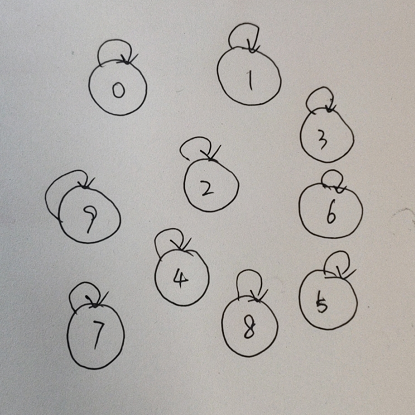 0
1
3
2
9
6
4
5
7
8